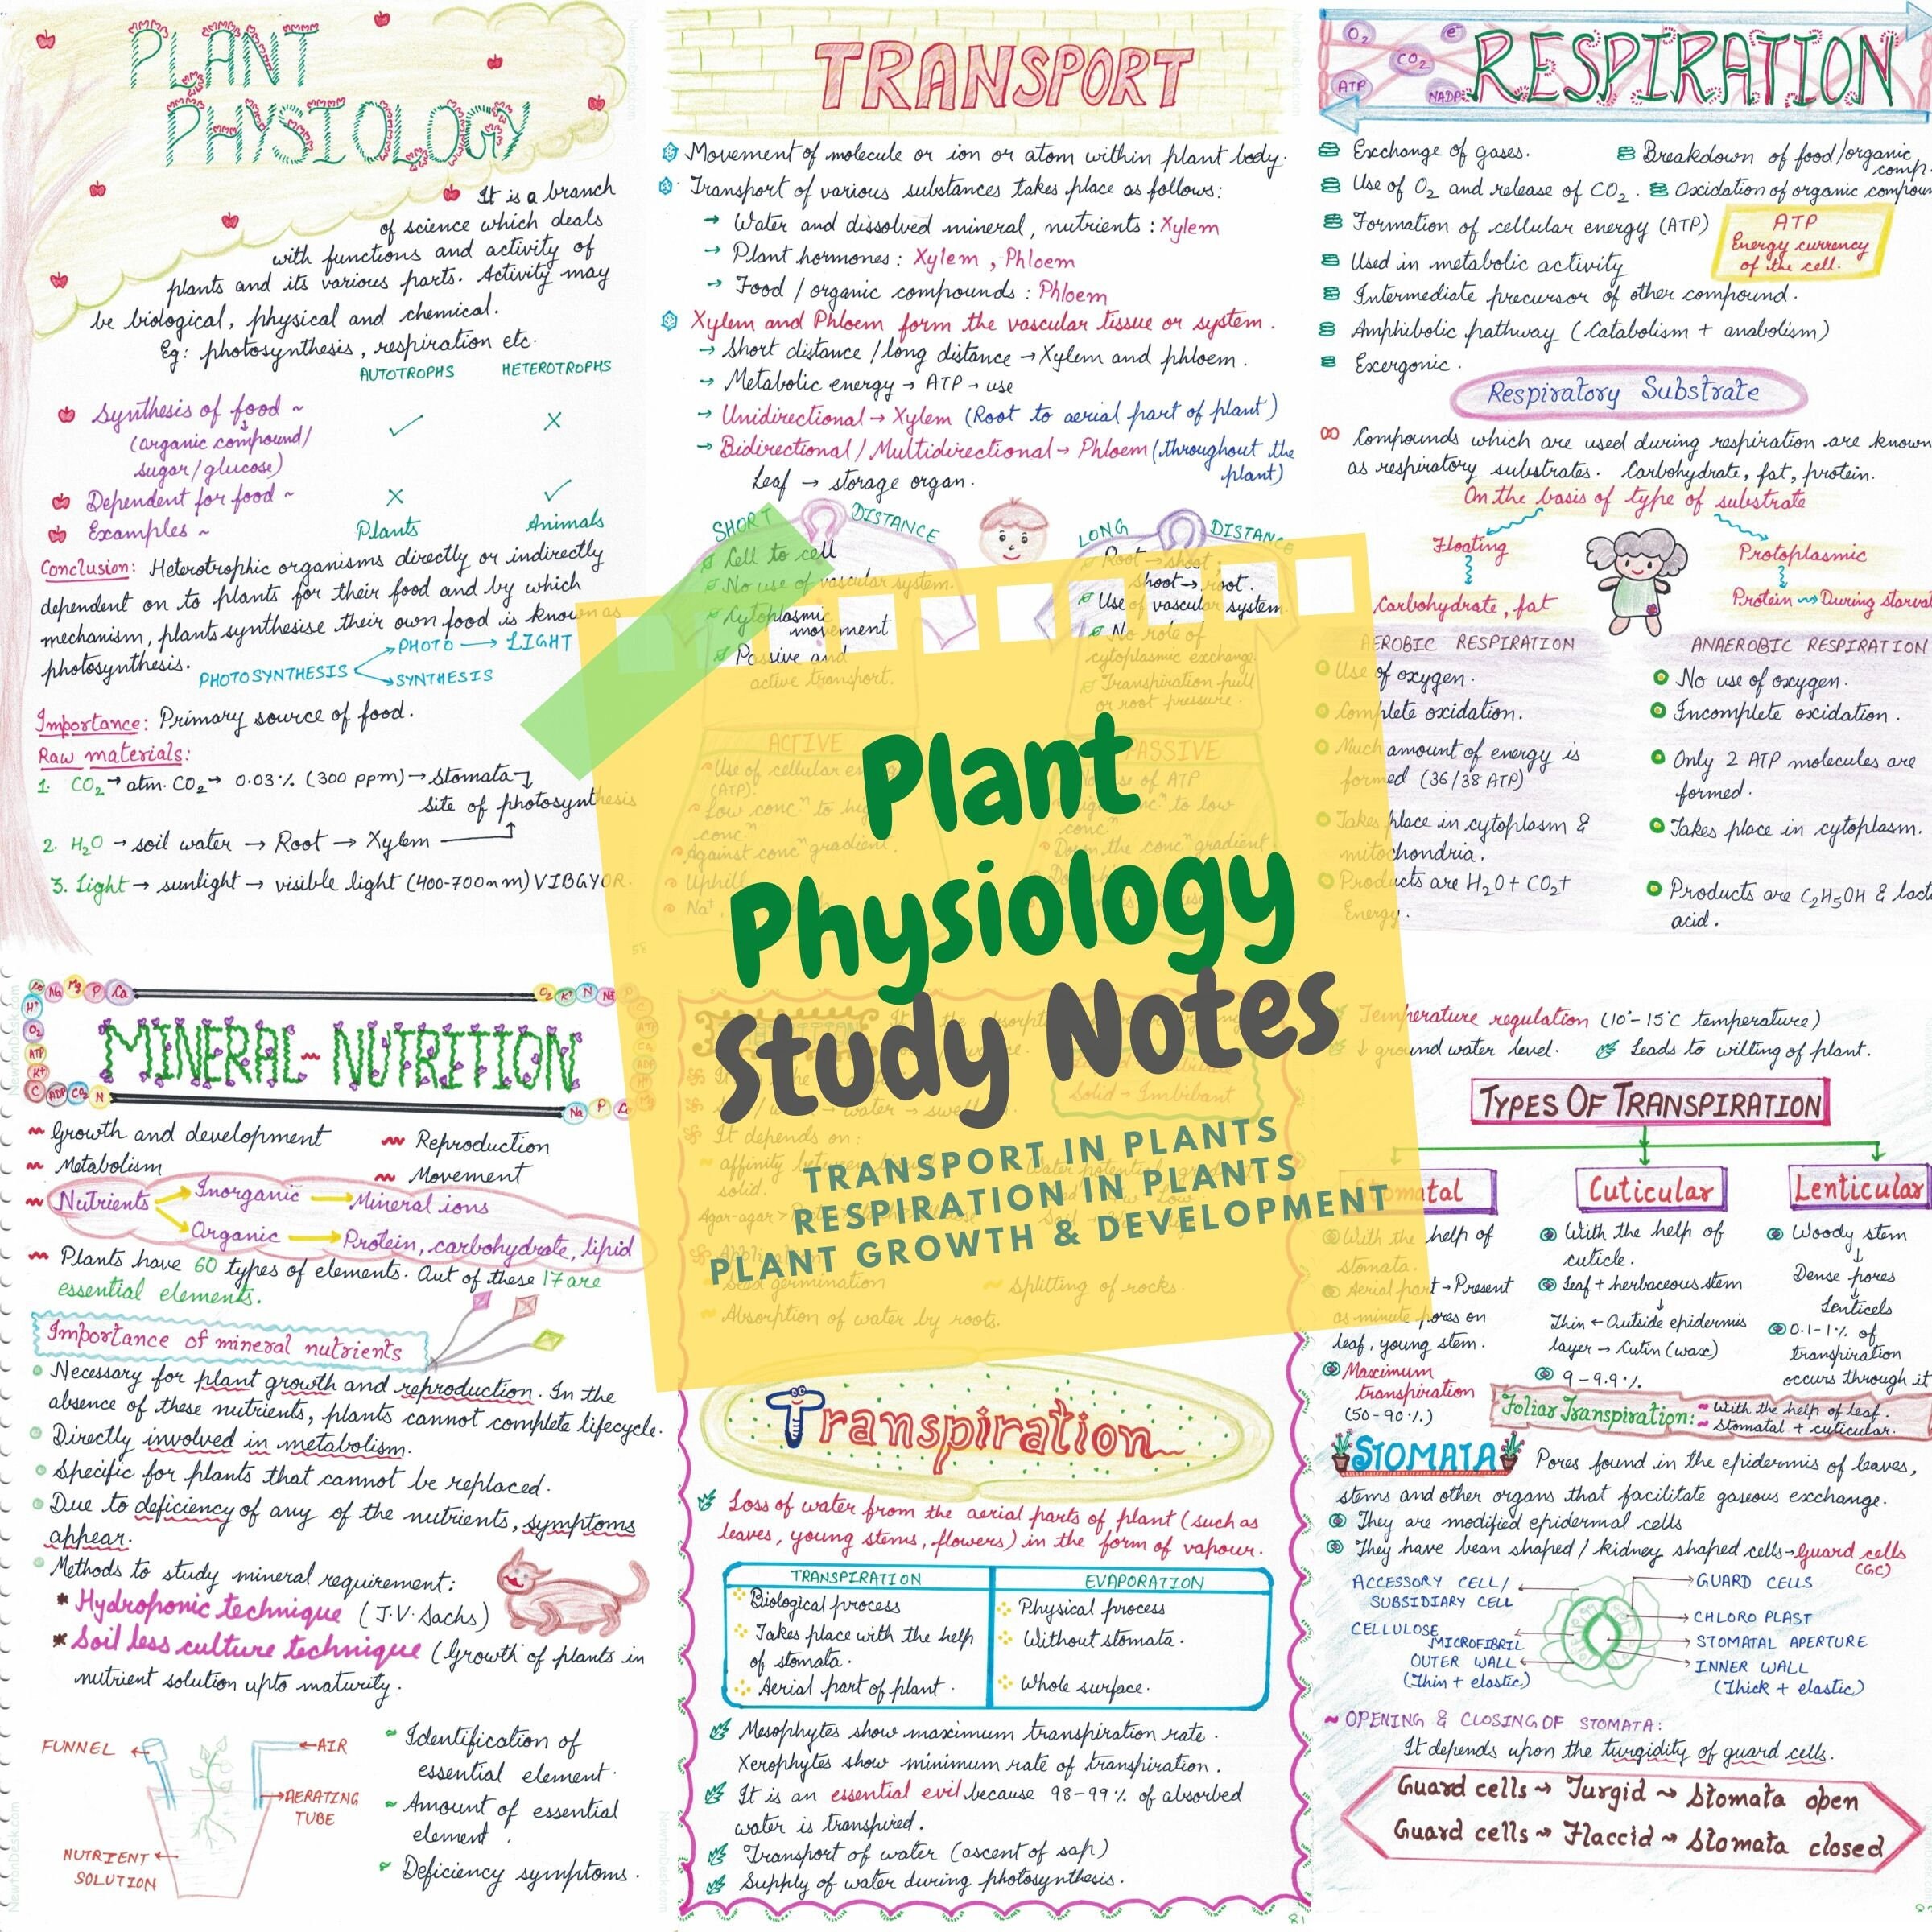 PLANT
PHYSIOLOGY
It is a branch
of science which deals
with functions and activity of
plants and its various parts. Activity may
be biological, physical and chemical.
Eg: photosynthesis, respiration etc.
AUTOTROPHS HETEROTROPHS
Synthesis of food ~ ✓ ×
(organic compound/
sugar/glucose)
Dependent for food ~ × ✓
Examples ~ Plants Animals
Conclusion: Heterotrophic organisms directly or indirectly
dependent on to plants for their food and by which
mechanism, plants synthesise their own food is known as
photosynthesis.
PHOTOSYNTHESIS
PHOTO → LIGHT
SYNTHESIS
Importance: Primary source of food.
Raw materials:
1. CO₂ → atm. CO₂ → 0.03% (300 ppm) → stomata
site of photosynthesis
2. H₂O → soil water → Root → Xylem
3. Light → sunlight → visible light (400-700nm) VIBGYOR.
TRANSPORT
Movement of molecule or ion or atom within plant body.
Transport of various substances takes place as follows:
→ Water and dissolved mineral, nutrients : Xylem
→ Plant hormones : Xylem, Phloem
→ Food / organic compounds : Phloem
Xylem and Phloem form the vascular tissue or system.
→ Short distance /long distance → Xylem and phloem.
→ Metabolic energy → ATP → use
→ Unidirectional → Xylem (Root to aerial part of plant)
→ Bidirectional / Multidirectional → Phloem (throughout the
plant)
Leaf → storage organ.
SHORT DISTANCE
Cell to cell
No use of vascular system.
Cytoplasmic
movement
Passive and
active transport.
LONG DISTANCE
Root → shoot
shoot → root.
Use of vascular system
No role of
cytoplasmic exchange
Transpiration pull
or root pressure.
ACTIVE
Use of cellular
(ATP).
Low concⁿ to
concⁿ
Against concⁿ gradient.
Uphill
Na⁺,
PASSIVE
use of ATP
concⁿ to low
concⁿ
Down the concⁿ gradient
O₂ CO₂ e⁻ ATP NADP
RESPIRATION
Exchange of gases.
Breakdown of food/organic
comp.
Use of O₂ and release of CO₂.
Oxidation of organic
Formation of cellular energy (ATP)
ATP
Energy currency
of the cell.
Used in metabolic activity
Intermediate precursor of other compound.
Amphibolic pathway (Catabolism + anabolism)
Exergonic.
Respiratory Substrate
Compounds which are used during respiration are known
as respiratory substrates. Carbohydrate, fat, protein.
On the basis of type of substrate
Floating
Carbohydrate, fat
Protoplasmic
Protein → During
AEROBIC RESPIRATION
Use of oxygen.
Complete oxidation.
Much amount of energy is
formed (36/38 ATP)
Takes place in cytoplasm &
mitochondria.
Products are H₂O + CO₂ +
Energy.
ANAEROBIC RESPIRATION
No use of oxygen.
Incomplete oxidation.
Only 2 ATP molecules are
formed.
Takes place in cytoplasm.
Products are C₂H₅OH &
acid.
Plant
Physiology
Study Notes
TRANSPORT IN PLANTS
RESPIRATION IN PLANTS
PLANT GROWTH & DEVELOPMENT
Na Mg P Ca
O₂ K⁺ N
H⁺
O₂
ATP
K⁺
C ADP CO₂ N
Na P
MINERAL-NUTRITION
Growth and development
Reproduction
Metabolism
Movement
Nutrients
Inorganic → Mineral ions
Organic → Protein, carbohydrate, lipid
Plants have 60 types of elements. Out of these 17 are
essential elements.
Importance of mineral nutrients
Necessary for plant growth and reproduction. In the
absence of these nutrients, plants cannot complete lifecycle.
Directly involved in metabolism.
Specific for plants that cannot be replaced.
Due to deficiency of any of the nutrients, symptoms
appear.
Methods to study mineral requirement:
* Hydroponic technique (J.V. Sachs)
* Soil less culture technique (Growth of plants in
nutrient solution upto maturity.
FUNNEL
AIR
AERATING
TUBE
NUTRIENT
SOLUTION
Identification of
essential element.
Amount of essential
element.
Deficiency symptoms.
Solid → Imbibant
It depends on:
affinity
solid.
Water potential
Agar-agar >
Seed germination
Splitting of rocks.
Absorption of water by roots.
Transpiration
Loss of water from the aerial parts of plant (such as
leaves, young stems, flowers) in the form of vapour.
TRANSPIRATION
Biological process
Takes place with the help
of stomata.
Aerial part of plant.
EVAPORATION
Physical process
Without stomata.
Whole surface.
Mesophytes show maximum transpiration rate.
Xerophytes show minimum rate of transpiration.
It is an essential evil because 98-99% of absorbed
water is transpired.
Transport of water (ascent of sap)
Supply of water during photosynthesis.
81
Temperature regulation (10°-15°C temperature)
↓ ground water level.
Leads to wilting of plant.
TYPES OF TRANSPIRATION
Stomatal
With the help of
stomata.
Aerial part → Present
as minute pores on
leaf, young stem.
Maximum
transpiration
(50-90%)
Cuticular
With the help of
cuticle.
Leaf + herbaceous stem
Thin ← Outside epidermis
layer → Cutin (wax)
9-9.9%.
Lenticular
Woody stem
Dense pores
Lenticels
0.1-1% of
transpiration
occurs through it
Foliar Transpiration: With the help of leaf.
Stomatal + cuticular.
STOMATA Pores found in the epidermis of leaves,
stems and other organs that facilitate gaseous exchange.
They are modified epidermal cells
They have bean shaped / kidney shaped cells → Guard cells
(GC)
ACCESSORY CELL/
SUBSIDIARY CELL
CELLULOSE
MICROFIBRIL
OUTER WALL
(Thin + elastic)
GUARD CELLS
CHLORO PLAST
STOMATAL APERTURE
INNER WALL
(Thick + elastic)
~ OPENING & CLOSING OF STOMATA:
It depends upon the turgidity of guard cells.
Guard cells → Turgid → Stomata open
Guard cells → Flaccid → Stomata closed